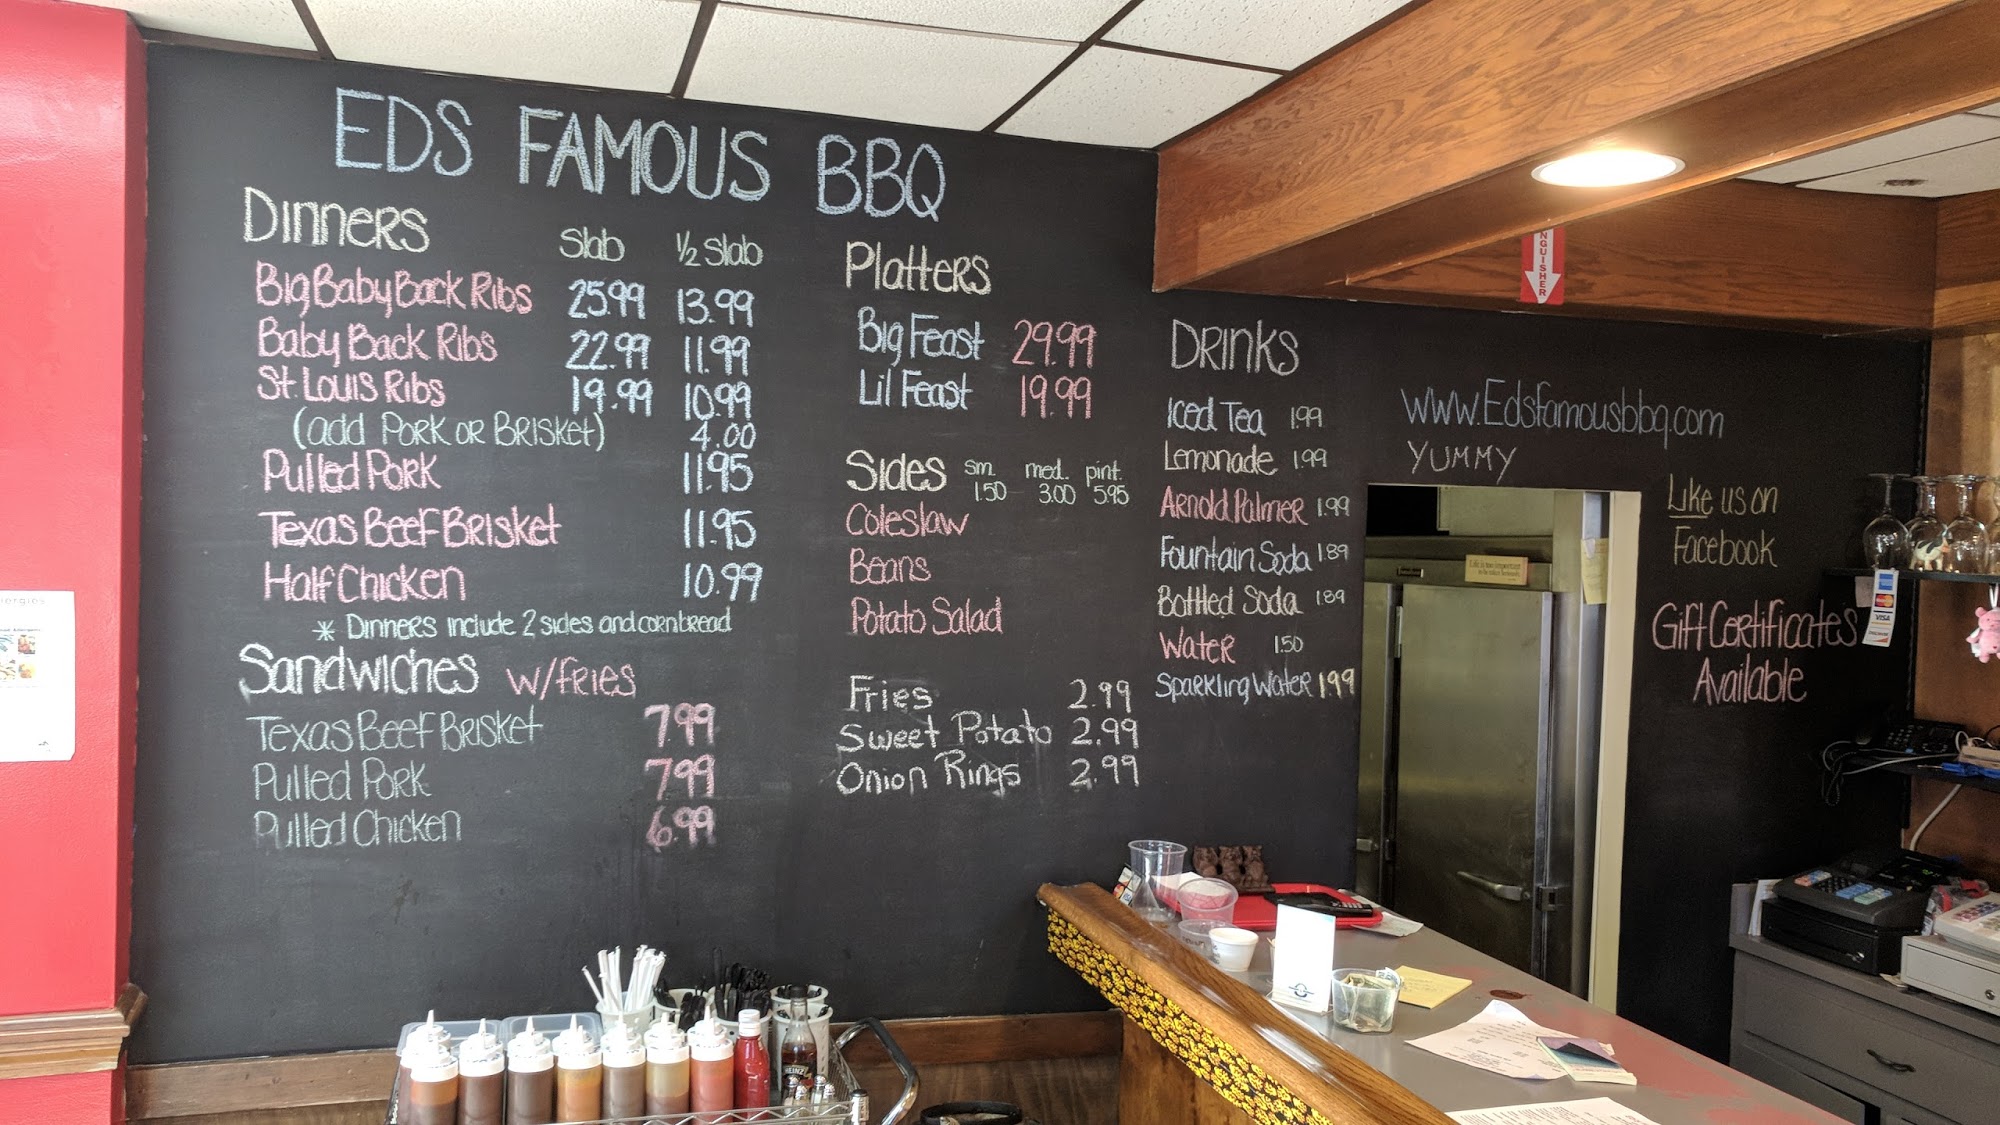 EDS FAMOUS BBQ
Dinners Slab 1/2 Slab
Big Baby Back Ribs 25.99 13.99
Baby Back Ribs 22.99 11.99
St. Louis Ribs 19.99 10.99
(add Pork or Brisket) 4.00
Pulled Pork 11.95
Texas Beef Brisket 11.95
Half Chicken 10.99
* Dinners include 2 sides and cornbread
Sandwiches w/fries
Texas Beef Brisket 7.99
Pulled Pork 7.99
Pulled Chicken 6.99
Platters
Big Feast 29.99
Lil Feast 19.99
Sides sm. med. pint.
1.50 3.00 5.95
Coleslaw
Beans
Potato Salad
Fries 2.99
Sweet Potato 2.99
Onion Rings 2.99
DRINKS
Iced Tea 1.99
Lemonade 1.99
Arnold Palmer 1.99
Fountain Soda 1.89
Bottled Soda 1.89
Water 1.50
Sparkling Water 1.99
www.Edsfamousbbq.com
YUMMY
Like us on
Facebook
Gift Certificates
Available
NGUISHER
VISA
HEINZ